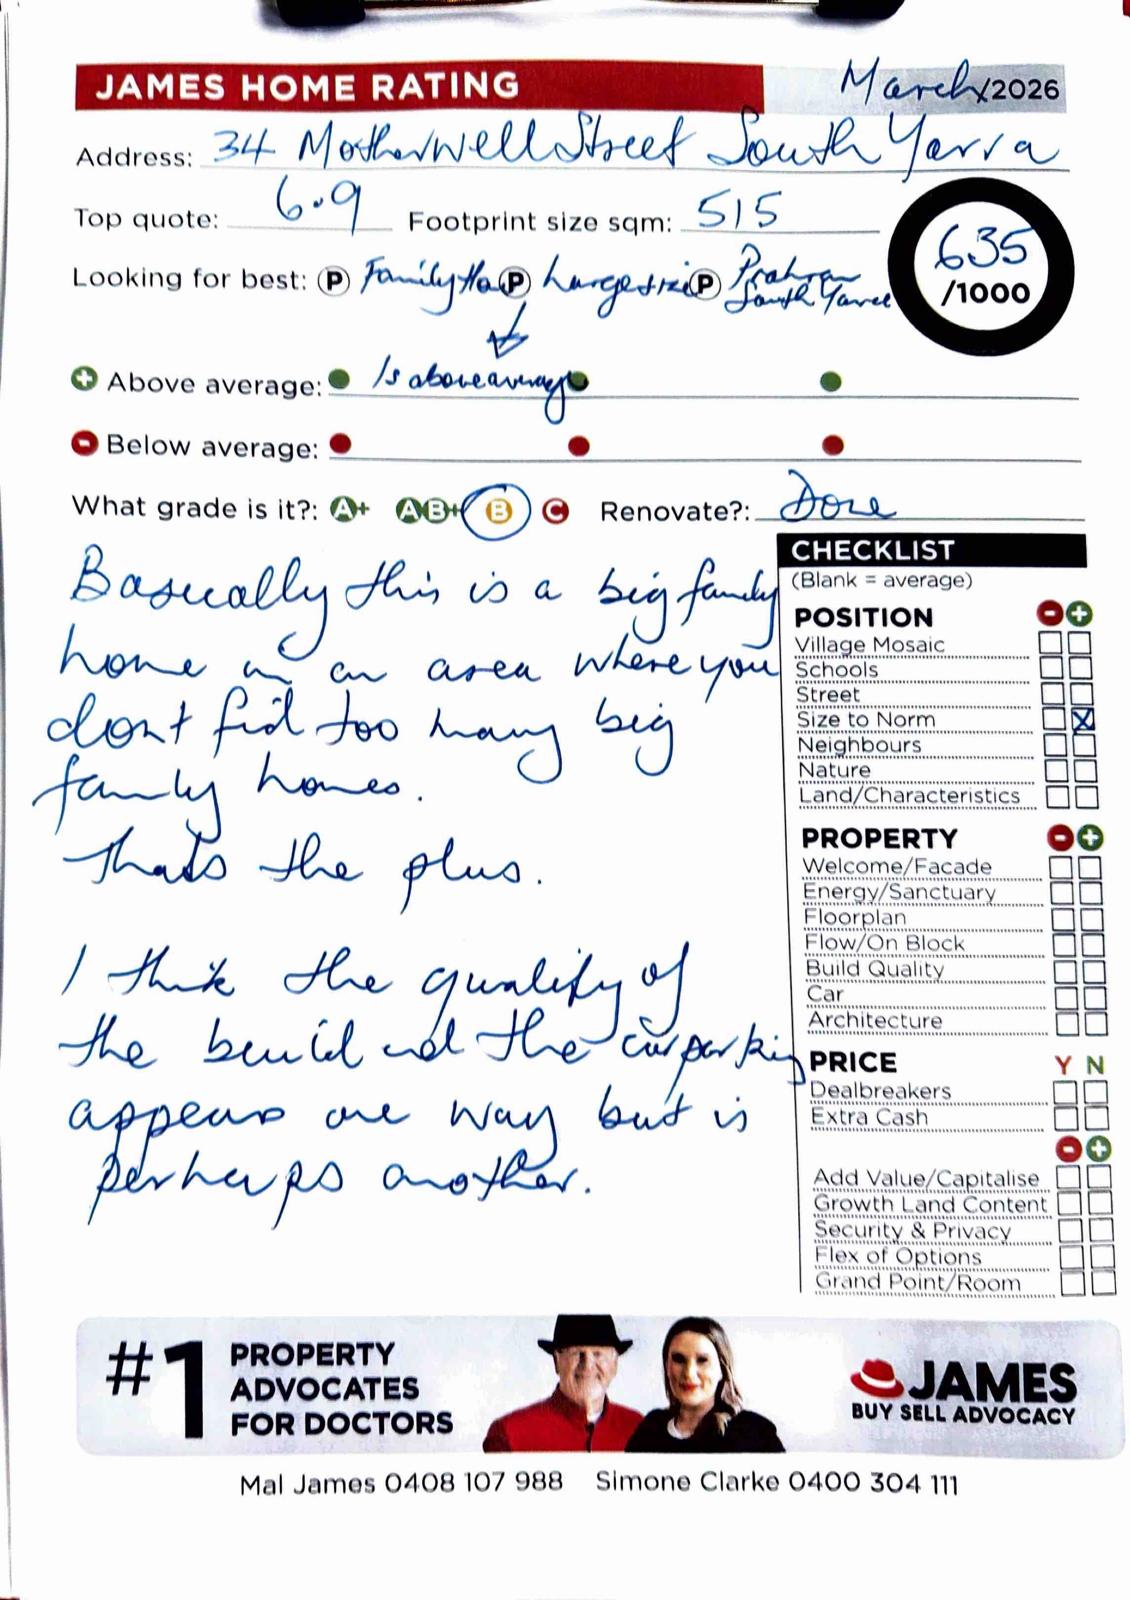 JAMES HOME RATING March/2026
Address: 34 Motherwell Street South Yarra
Top quote: 6.9 Footprint size sqm: 515
635
/1000
Looking for best: P Family Ho P Large size P Prahran
South Yarra
+ Above average: Is above average
- Below average:
What grade is it?: A+ AB+ B C Renovate?: Done
Basically this is a big family
home in an area where you
dont find too many big
family homes.
Thats the plus.
I think the quality of
the build and the carparking
appears one way but is
perhaps another.
CHECKLIST
(Blank = average)
POSITION - +
Village Mosaic
Schools
Street
Size to Norm X
Neighbours
Nature
Land/Characteristics
PROPERTY - +
Welcome/Facade
Energy/Sanctuary
Floorplan
Flow/On Block
Build Quality
Car
Architecture
PRICE Y N
Dealbreakers
Extra Cash
- +
Add Value/Capitalise
Growth Land Content
Security & Privacy
Flex of Options
Grand Point/Room
#1 PROPERTY
ADVOCATES
FOR DOCTORS
JAMES
BUY SELL ADVOCACY
Mal James 0408 107 988 Simone Clarke 0400 304 111